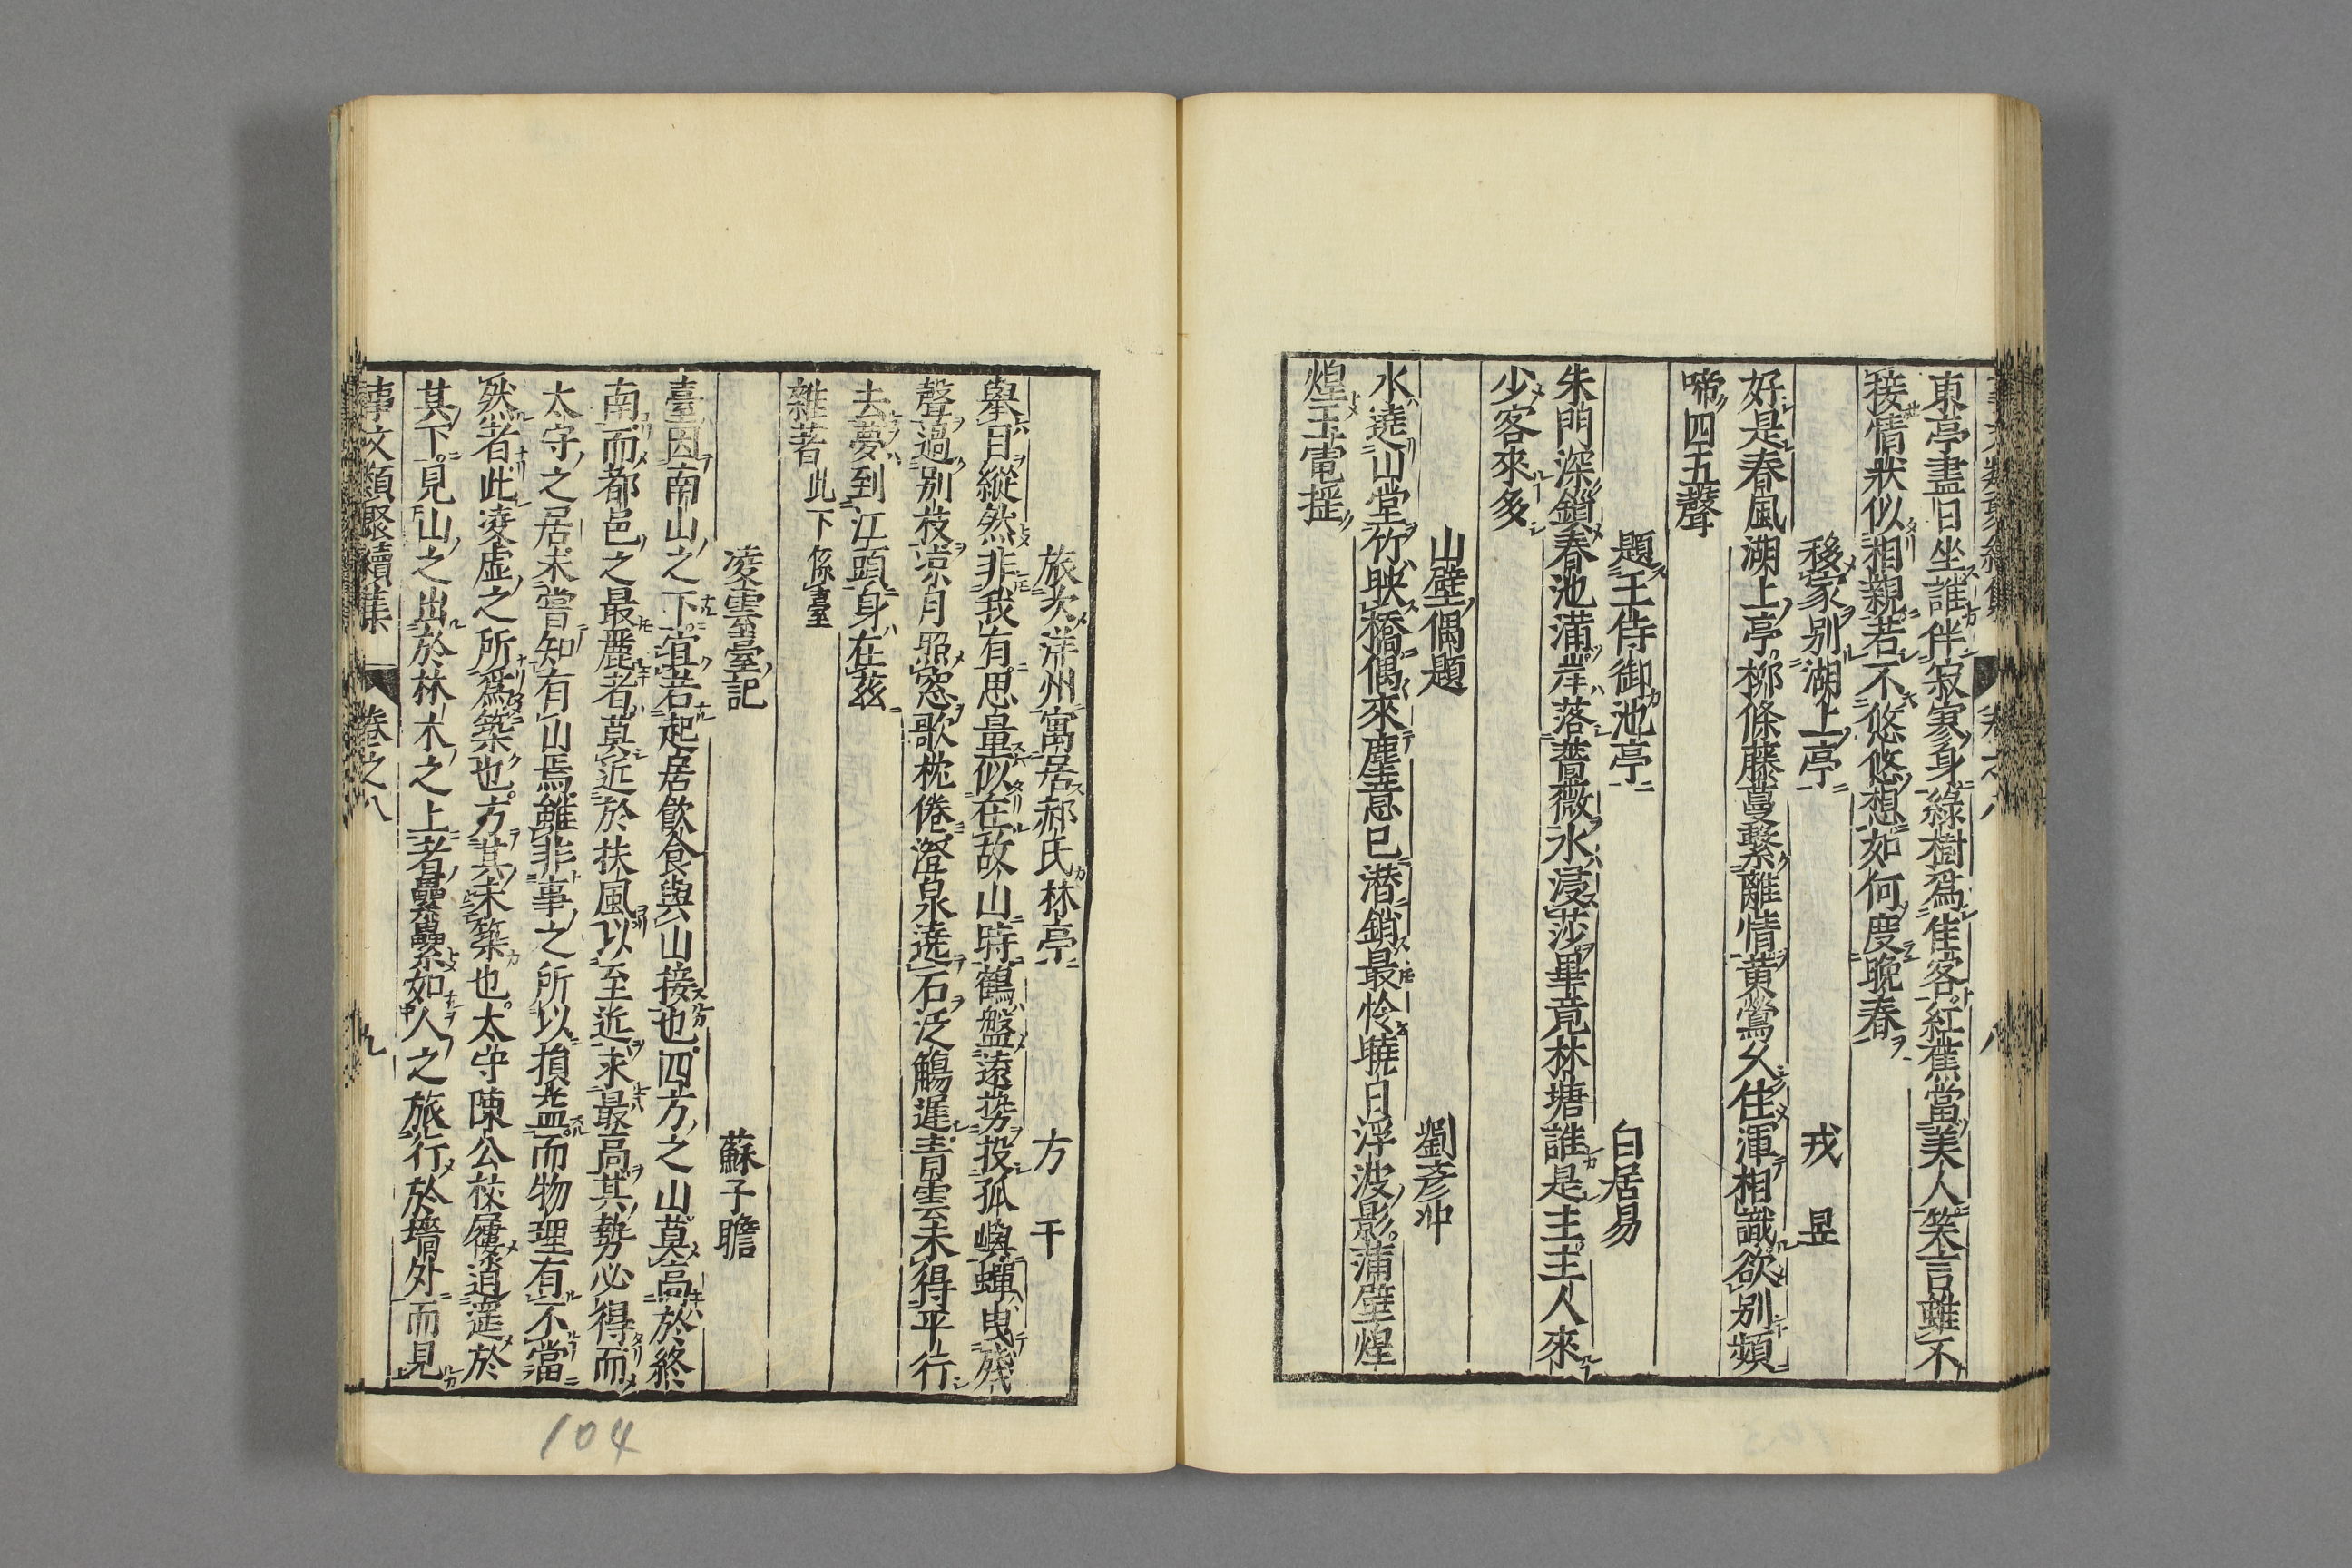 東亭晝日坐誰伴寂寥身綠樹爲佳客紅蕉當美人笑言雖不
接情狀似相親若不悠悠想如何度晚春
移家別湖上亭 戎昱
好是春風湖上亭柳條藤蔓繫離情黃鶯久住渾相識欲別頻
啼四五聲
題王侍御池亭 白居易
朱門深鎖春池滿岸落薔薇水浸莎畢竟林塘誰是主主人來
少客來多
山壁偶題 劉彥冲
水遶山堂竹映橋偶來塵意已潜銷最怜曉日浮波影蒲壁煌
煌玉電揺
旅次洋州寓居郝氏林亭 方干
舉目縱然非我有思量似在故山時鶴盤遠勢投孤嶼蟬曳殘
聲過別枝凉月照窓歌枕倦澄泉遶石泛觴遲青雲未得平行
去夢到江頭身在茲
雜著此下係臺
凌雲臺記 蘇子瞻
臺因南山之下宜若起居飮食與山接也四方之山莫高於終
南而都邑之最麗者莫近於扶風以至近求最高其勢必得而
太守之居未嘗知有山焉雖非事之所以損益而物理有不當
然者此凌虛之所爲築也方其未築也太守陳公杖屨逍遥於
其下見山之出於林木之上者纍纍如人之旅行於墻外而見
事文類聚續集 卷之八 九
104